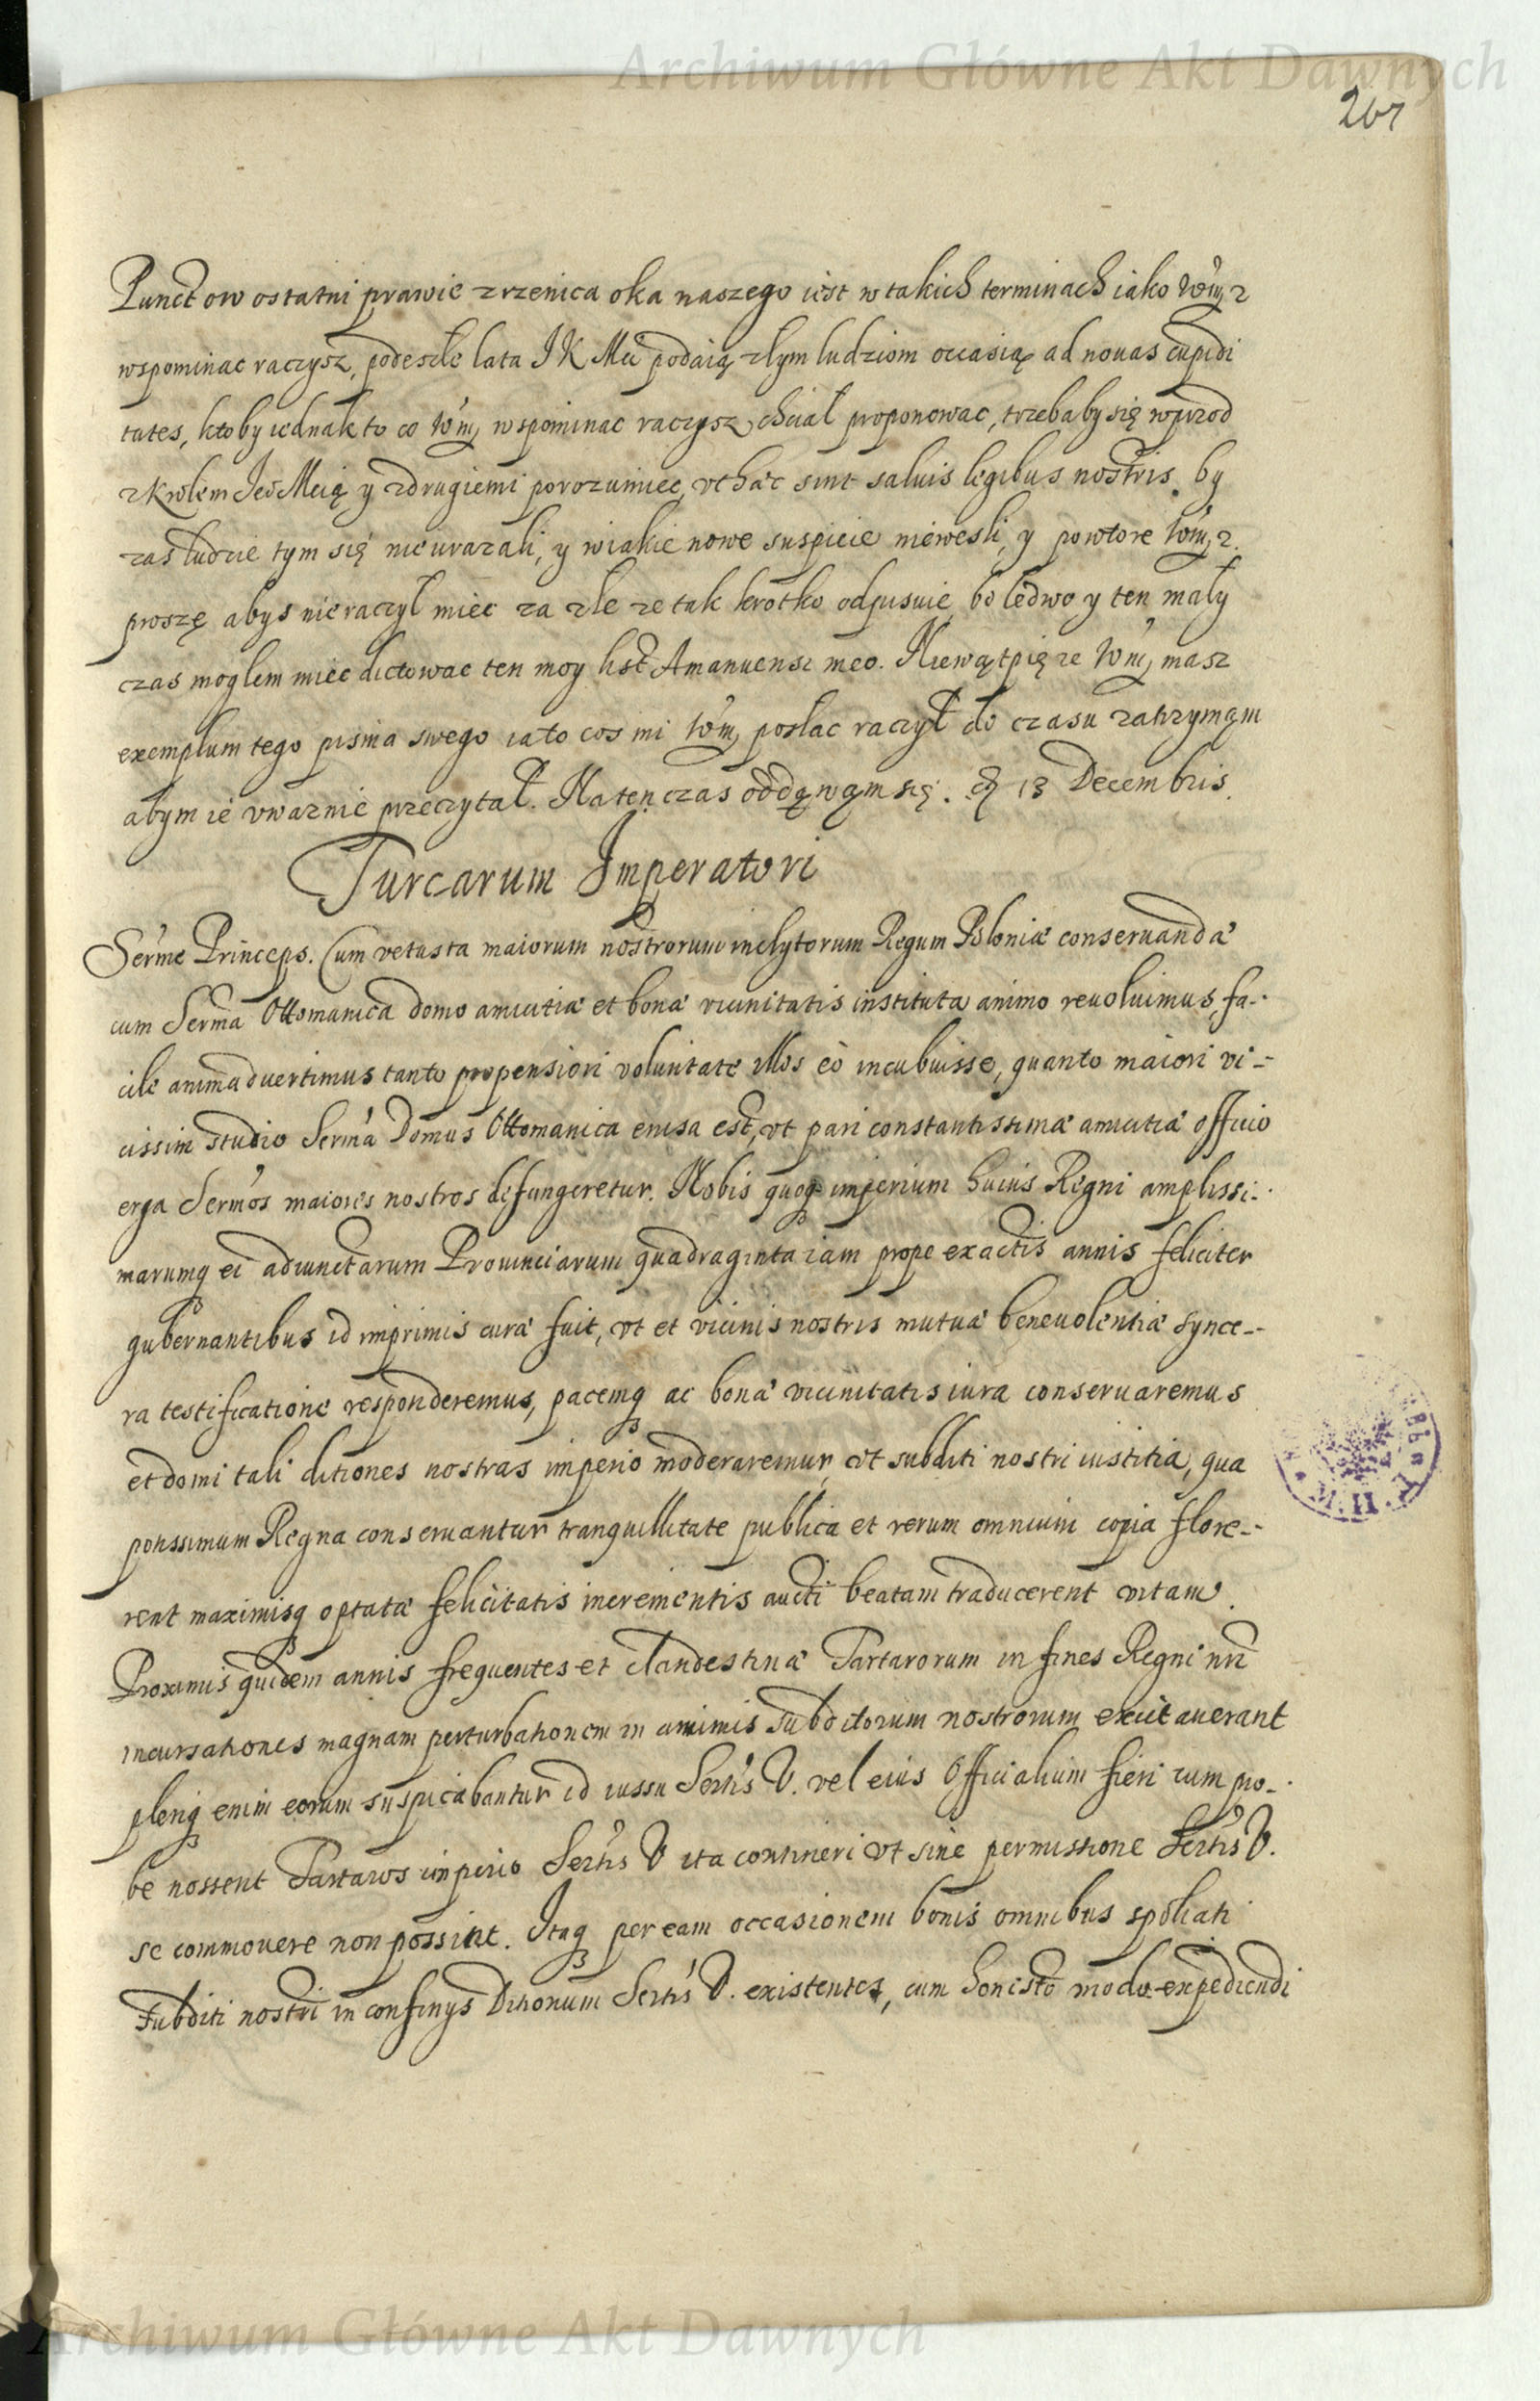 Archiwum Główne Akt Dawnych
267
Punctow ostatni prawie zrzenica oka naszego iest w takich terminach iako Wm, z
wspominac raczysz, podeszłe lata J K Mci podaią złym ludziom occasią ad nouas cupidi
tates, ktoby iednak to co Wm, wspominac raczysz chciał proponowac, trzebaby się wprzod
z Krolem Jeo Mcią y zdrugiemi porozumiec, vt hæc sint saluis legibus nostris. by
zas ludzie tym się nieurazali, y wiakie nowe suspicie nieweszli, y powtore Wm, z.
proszę abys nieraczył miec za złe ze tak krotko odpisuie, bo ledwo y ten mały
czas moglem miec dictowac ten moy list Amanuensi meo. Niewątpię ze Wm, masz
exemplum tego pisma swego ia to cos mi Wm, posłac raczył do czasu zatrzymam
abym ie vwaznie przeczytał. Naten czas oddawam się. 13 Decembris.
Turcarum Imperatori
Serme Princeps. Cum vetusta maiorum nostrorum inclytorum Regum Poloniæ conseruandæ
cum Serma Ottomanica domo amicitiæ et bonæ vicinitatis instituta animo reuoluimus, fa-
cile animaduertimus tanto propensiori voluntate illos eò incubuisse, quanto maiori vi-
cissim studio Serma Domus Ottomanica enisa est, vt pari constantissimæ amicitiæ officio
erga Sermos maiores nostros defungeretur. Nobis quoq imperium huius Regni amplissi-
marumq ei adiunctarum Prouinciarum quadraginta iam prope exactis annis feliciter
gubernantibus id imprimis curæ fuit, vt et vicinis nostris mutuæ beneuolentiæ synce-
ra testificatione responderemus, pacemq ac bonæ vicinitatis iura conseruaremus
et domi tali ditiones nostras imperio moderaremur, vt subditi nostri iustitia, qua
potissimum Regna conseruantur tranquillitate publica et rerum omnium copia flore-
rent maximisq optatæ felicitatis incrementis aucti beatam traducerent vitam.
Proximis quidem annis frequentes et clandestinæ Tartarorum in fines Regni nri
incursationes magnam perturbationem in animis subditorum nostrorum excitauerant
pleriq enim eorum suspicabantur id iussu Sertis V. vel eius Officialium fieri cum pro-
be nossent Tartaros imperio Sertis V ita contineri vt sine permissione Sertis V.
se commouere non possint. Itaq per eam occasionem bonis omnibus spoliati
Subditi nostri in confinys Ditionum Sertis V. existentes, cum honesto modo expediendi
Archiwum Główne Akt Dawnych